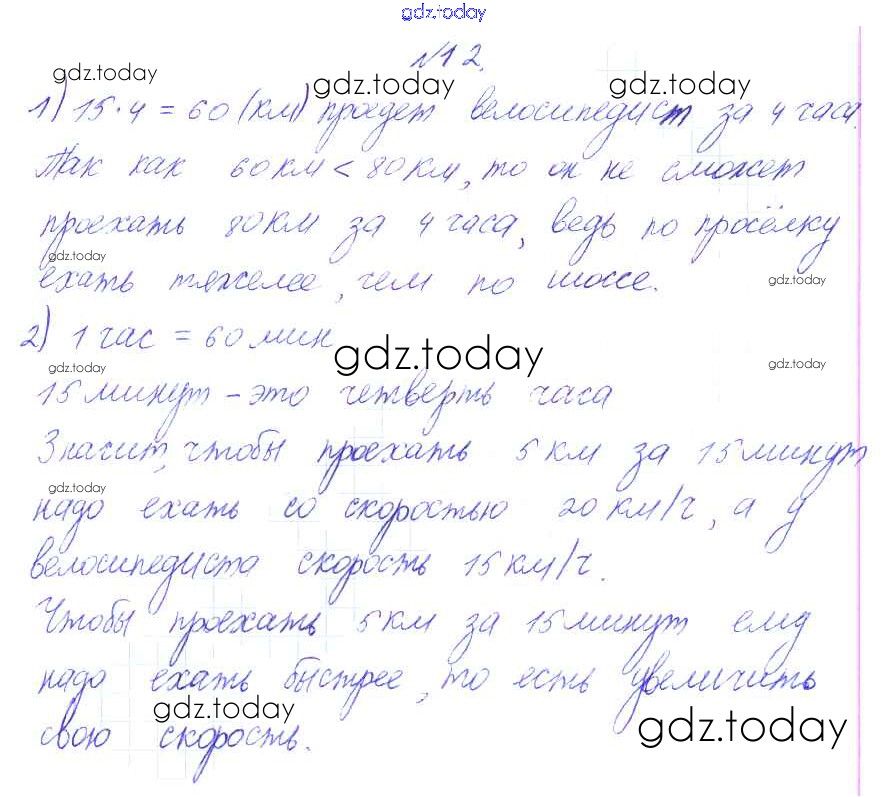 gdz.today
№12.
gdz.today
gdz.today
gdz.today
1) 15·4 = 60 (км) проедет велосипедист за 4 часа.
Так как 60 км < 80 км, то он не сможет
проехать 80 км за 4 часа, ведь по просёлку
gdz.today
ехать тяжелее, чем по шоссе.
gdz.today
2) 1 час = 60 мин
gdz.today
gdz.today
gdz.today
15 минут – это четверть часа
Значит, чтобы проехать 5 км за 15 минут
gdz.today
надо ехать со скоростью 20 км/ч, а у
велосипедиста скорость 15 км/ч.
Чтобы проехать 5 км за 15 минут ему
надо ехать быстрее, то есть увеличить
gdz.today
свою скорость.
gdz.today